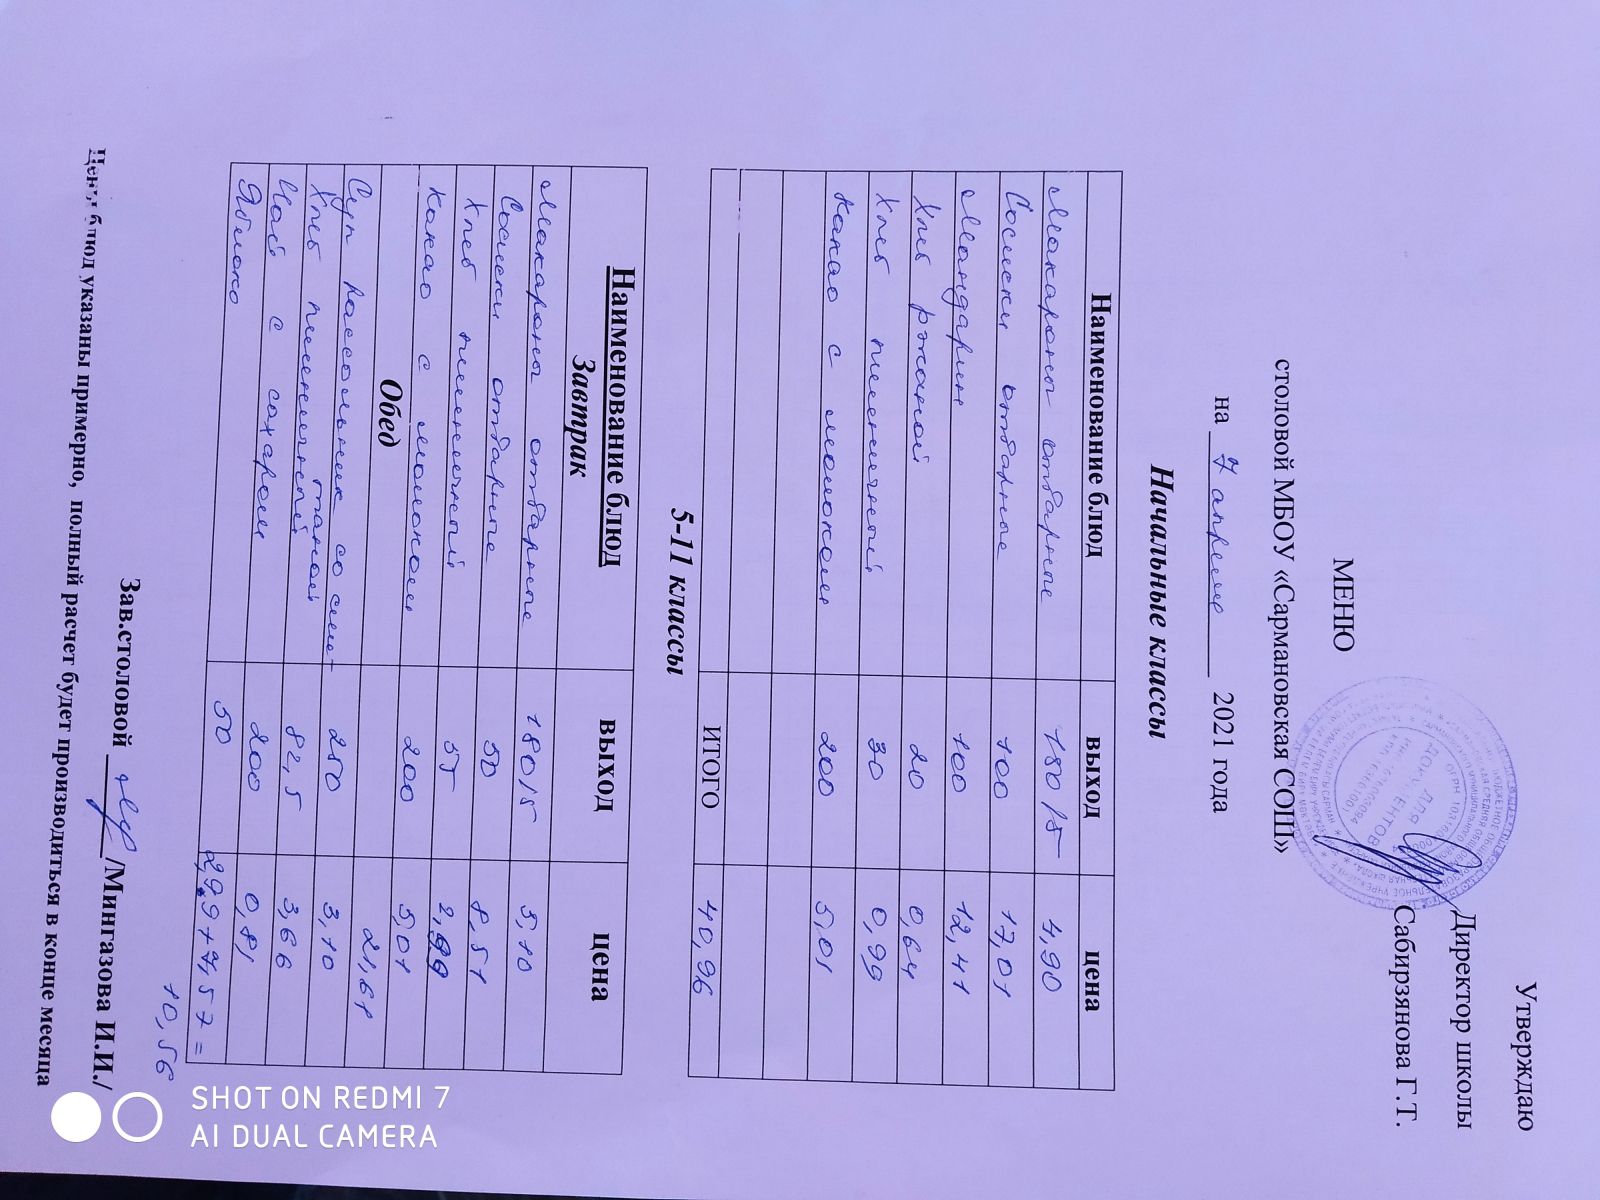 Утверждаю
Директор школы
Сабирзянова Г.Т.
ДЛЯ
ДОКУМЕНТОВ
МЕНЮ
столовой МБОУ «Сармановская СОШ»
на 7 апреля 2021 года
Начальные классы
Наименование блюд выход цена
Макароны отварные 180/5 4,90
Сосиски отварные 100 17,01
Мандарин 100 12,41
Хлеб ржаной 20 0,64
Хлеб пшеничный 30 0,99
Какао с молоком 200 5,01
ИТОГО 40,96
5-11 классы
Наименование блюд выход цена
Завтрак
Макароны отварные 180/5 5,10
Сосиски отварные 50 8,51
Хлеб пшеничный 55 2,99
Какао с молоком 200 5,01
Обед 21,61
Суп рассольник со сме- 250 3,10
таной
Хлеб пшеничный 82,5 3,66
Чай с сахаром 200 0,81
Яблоко 50 2,99+7,57=
10,56
Зав.столовой /Мингазова И.И./
Цены блюд указаны примерно, полный расчет будет производиться в конце месяца
SHOT ON REDMI 7
AI DUAL CAMERA